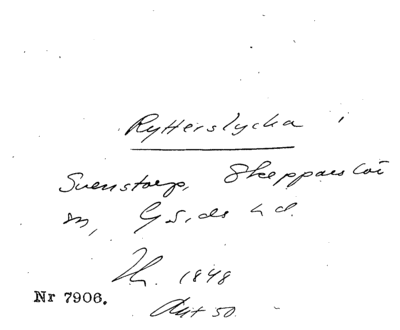 Rytterslycka i
Svenstorp, Skepparslöv
sn, Gärds hd.
1848
Nr 7906.
Akt 50